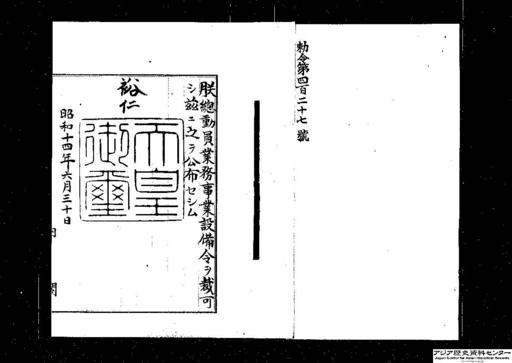 勅令第四百二十七號
朕總動員業務事業設備令ヲ裁可
シ茲ニ之ヲ公布セシム
裕仁
天皇
御璽
昭和十四年六月三十日
内閣
アジア歴史資料センター
Japan Center for Asian Historical Records